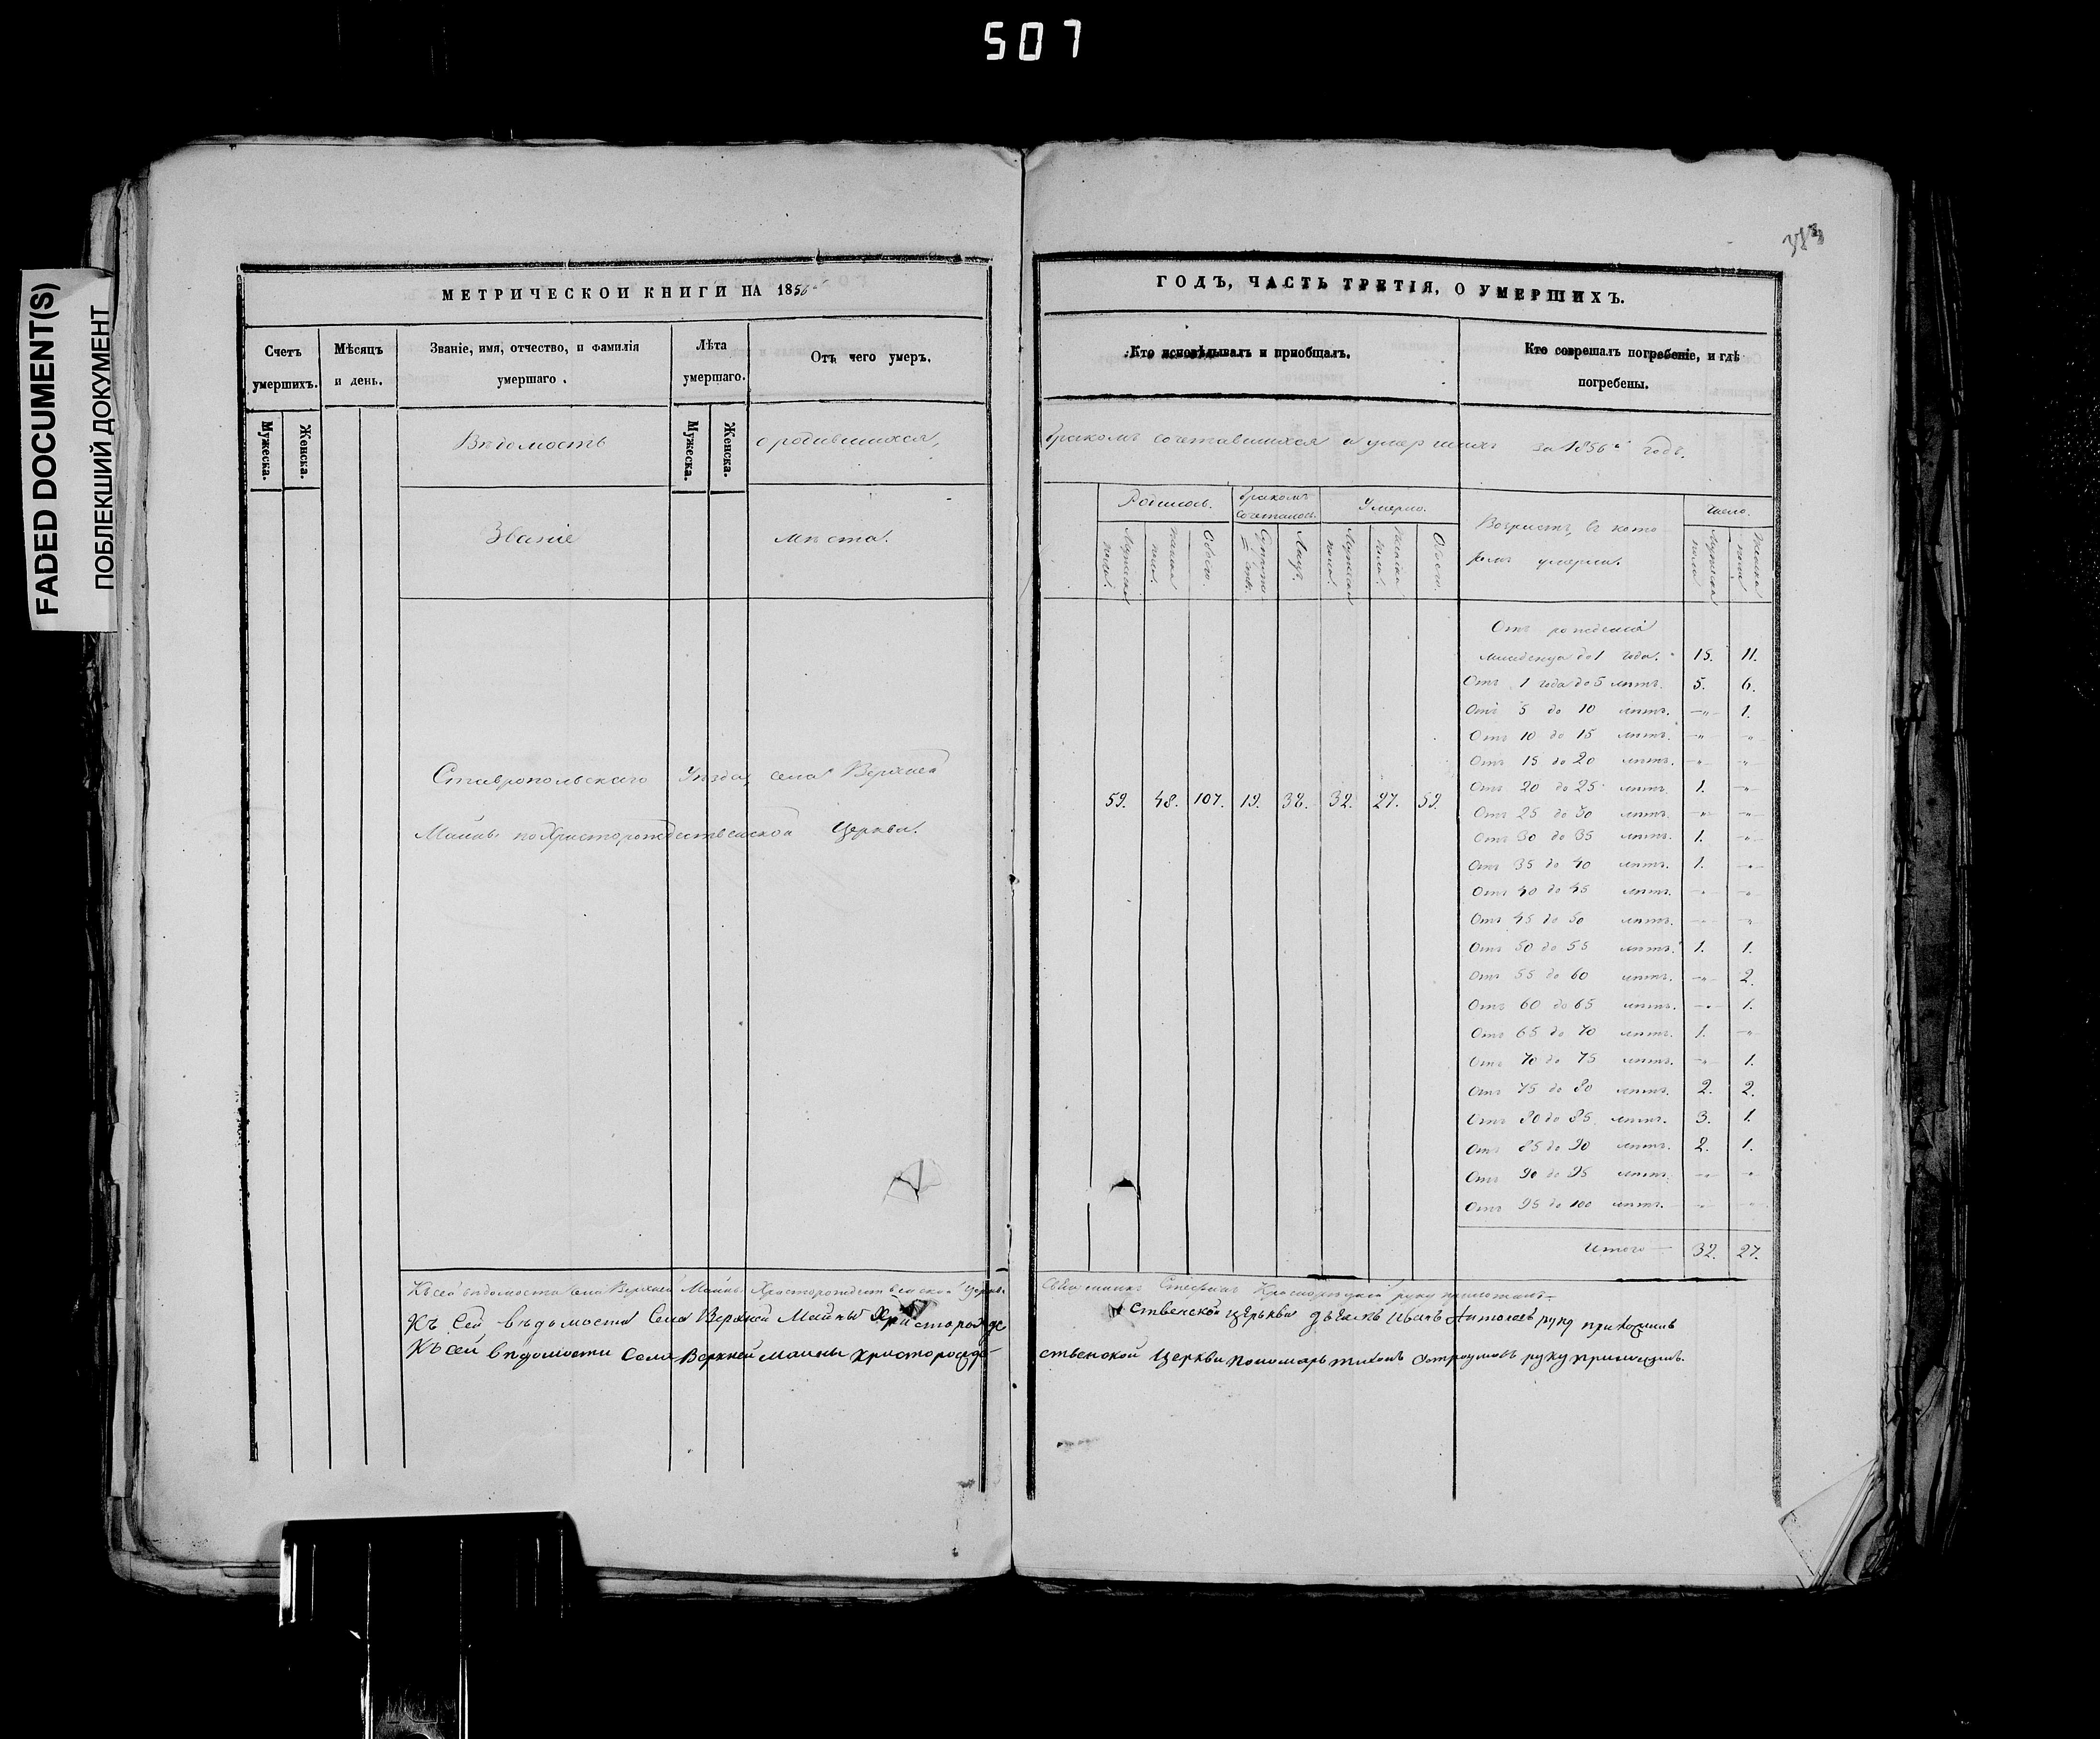 507
FADED DOCUMENT(S)
ПОБЛЕКШИЙ ДОКУМЕНТ
МЕТРИЧЕСКОИ КНИГИ НА 1856й
Счетъ умершихъ.
Мужеска.
Женска.
Мѣсяцъ и день.
Званіе, имя, отчество, и фамилія умершаго.
Лѣта умершаго.
Мужеска.
Женска.
Отъ чего умеръ.
Вѣдомость о родившихся,
Званіе мѣста.
Ставропольскаго Уѣзда, села Верхней
Майны по Христорождественской Церкви.
Къ сей вѣдомости села Верхней Майны Христорождественской Церкви
Къ Сей вѣдомости Села Верхней Майны Христорожде
Къ сей вѣдомости Села Верхней Майны Христорожде-
ГОДЪ, ЧАСТЬ ТРЕТІЯ, О УМЕРШИХЪ.
Кто исповѣдывалъ и приобщалъ.
Кто соврешалъ погребеніе, и гдѣ погребены.
бракомъ сочетавшихся и умершихъ за 1856й годъ.
Родилось.
Мужеска пола.
Женска пола.
Обоего.
бракомъ сочеталось.
Лицъ.
Умерло.
Мужеска пола.
Женска пола.
Обоего.
Возрастъ, въ кото
ромъ умерли.
Число.
Мужеска пола
Женска пола
59. 48. 107. 19. 38. 32. 27. 59.
Отъ рожденія
младенца до 1 года. 15. 11.
Отъ 1 года до 5 лѣтъ. 5. 6.
Отъ 5 до 10 лѣтъ. -"- 1.
Отъ 10 до 15 лѣтъ. -"- -"-
Отъ 15 до 20 лѣтъ. -"- -"-
Отъ 20 до 25 лѣтъ. 1. -"-
Отъ 25 до 30 лѣтъ. -"- -"-
Отъ 30 до 35 лѣтъ. 1. -"-
Отъ 35 до 40 лѣтъ. 1. -"-
Отъ 40 до 45 лѣтъ. -"- -"-
Отъ 45 до 50 лѣтъ. -"- -"-
Отъ 50 до 55 лѣтъ. 1. 1.
Отъ 55 до 60 лѣтъ. -"- 2.
Отъ 60 до 65 лѣтъ. -"- 1.
Отъ 65 до 70 лѣтъ. 1. -"-
Отъ 70 до 75 лѣтъ. -"- 1.
Отъ 75 до 80 лѣтъ. 2. 2.
Отъ 80 до 85 лѣтъ. 3. 1.
Отъ 85 до 90 лѣтъ. 2. 1.
Отъ 90 до 95 лѣтъ. -"- -"-
Отъ 95 до 100 лѣтъ. -"- -"-
Итого — 32. 27.
Священникъ Стефанъ руку приложилъ
ственской Церькви дьяконъ Иванъ руку приложилъ
ственской Церкви пономарь Тихонъ Остроумовъ руку приложилъ.